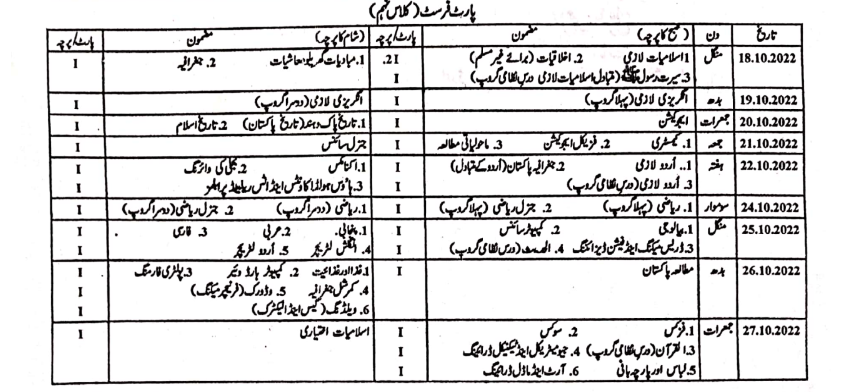 پارٹ فرسٹ (کلاس نہم)
تاریخ دن (صبح کا پرچہ) مضمون پارٹ/پرچہ (شام کا پرچہ) مضمون پارٹ/پرچہ
18.10.2022 منگل 1.اسلامیات لازمی 2. اخلاقیات (برائے غیر مسلم) 2.I 1.مبادیات گھریلو معاشیات 2. جغرافیہ I
3.سیرت رسولﷺ (متبادل اسلامیات لازمی درس نظامی گروپ) I
19.10.2022 بدھ انگریزی لازمی (پہلا گروپ) I انگریزی لازمی (دوسرا گروپ) I
20.10.2022 جمعرات ایجوکیشن I 1.تاریخ پاک و ہند (تاریخ پاکستان) 2. تاریخ اسلام I
21.10.2022 جمعہ 1. کیمسٹری 2. فزیکل ایجوکیشن 3. ماحولیاتی مطالعہ I جنرل سائنس I
22.10.2022 ہفتہ 1.. اُردو لازمی 2. جغرافیہ پاکستان (اُردو کے متبادل) I 1.اکنامکس 2. بجلی کی وائرنگ I
3. اُردو لازمی (درس نظامی گروپ) I 3.ہاؤس ہولڈ اکاؤنٹس اینڈ اٹس ریلیٹڈ پرابلمز I
24.10.2022 سوموار 1. ریاضی (پہلا گروپ) 2. جنرل ریاضی (پہلا گروپ) I 1.ریاضی (دوسرا گروپ) 2. جنرل ریاضی (دوسرا گروپ) I
25.10.2022 منگل 1. بیالوجی 2. کمپیوٹر سائنس I 1.پنجابی. 2.عربی 3. فارسی I
3.ڈریس میکنگ اینڈ فیشن ڈیزائننگ 4. الحدیث (درس نظامی گروپ) I 4. انگلش لٹریچر 5. اُردو لٹریچر I
26.10.2022 بدھ مطالعہ پاکستان I 1.غذا اور غذائیت 2. کمپیوٹر ہارڈ ویئر 3.پولٹری فارمنگ I
4. کمرشل جغرافیہ 5. وڈ ورک (فرنیچر میکنگ) I
6. ویلڈنگ (گیس اینڈ الیکٹرک) I
27.10.2022 جمعرات 1.فزکس 2. سوکس I اسلامیات اختیاری I
3.القرآن (درس نظامی گروپ) 4. جیومیٹریکل اینڈ ٹیکنیکل ڈرائینگ I
5.لباس اور پارچہ بافی 6. آرٹ اینڈ ماڈل ڈرائینگ I